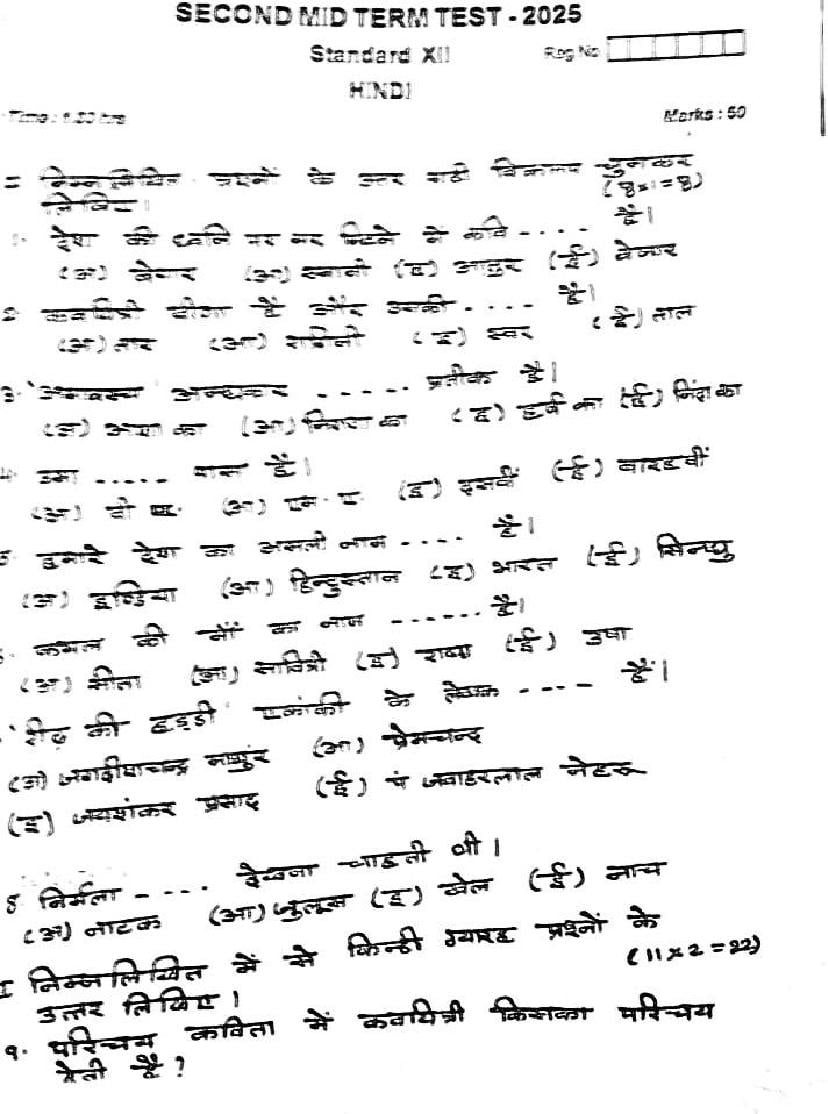 SECOND MID TERM TEST - 2025
Standard XII
Reg No
HINDI
Time : 1.30 hrs
Marks : 50
I निम्नलिखित प्रश्नों के उत्तर सही विकल्प चुनकर
लिखिए। (8x1=8)
1. देश की ध्वनि पर मर मिटने में कवि .... हैं।
(अ) बेचार (आ) स्वामी (इ) आतुर (ई) बेजार
2. कवयित्री वीणा हैं और उसकी ..... हैं।
(अ) तार (आ) रागिनी (इ) स्वर (ई) ताल
3. 'अमावस्य अन्धकार ..... प्रतीक है।
(अ) आशा का (आ) निराशा का (इ) हर्ष का (ई) निंदा का
4. उमा ..... पास हैं।
(अ) बी ए. (आ) एम. ए. (इ) दसवीं (ई) बारहवीं
5. हमारे देश का असली नाम .... है।
(अ) इण्डिया (आ) हिन्दुस्तान (इ) भारत (ई) सिन्धु
कमल की माँ का नाम ...... है।
(अ) सीता (आ) सावित्री (इ) राधा (ई) उषा
'रीढ़ की हड्डी' एकांकी के लेखक .... हैं।
(अ) जगदीशचन्द्र माथुर (आ) प्रेमचन्द
(इ) जयशंकर प्रसाद (ई) पं जवाहरलाल नेहरू
8 निर्मला .... देखना चाहती थी।
(अ) नाटक (आ) जुलूस (इ) खेल (ई) नाच
I निम्नलिखित में से किन्हीं ग्यारह प्रश्नों के
उत्तर लिखिए। (11x2=22)
9. परिचय कविता में कवयित्री किसका परिचय
देती है?